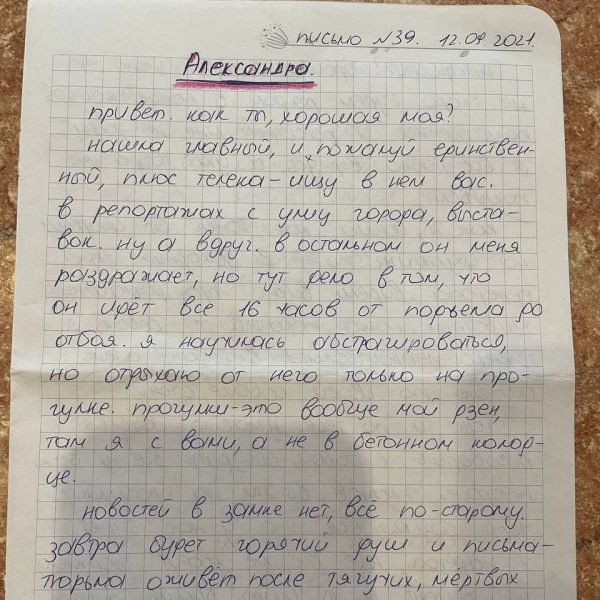 письмо №39. 12.09.2021.
Александра.
привет. как ты, хорошая моя?
нашла главный, и, пожалуй единствен-
ный, плюс телека - ищу в нем вас.
в репортажах с улиц города, выста-
вок. ну а вдруг. в остальном он меня
раздражает, но тут дело в том, что
он идёт все 16 часов от подъема до
отбоя. я научилась абстрагироваться,
но отдыхаю от него только на про-
гулке. прогулки - это вообще мой дзен,
там я с вами, а не в бетонном колод-
це.
новостей в замке нет, всё по-старому.
завтра будет горячий душ и письма -
тюрьма оживёт после тягучих, мёртвых